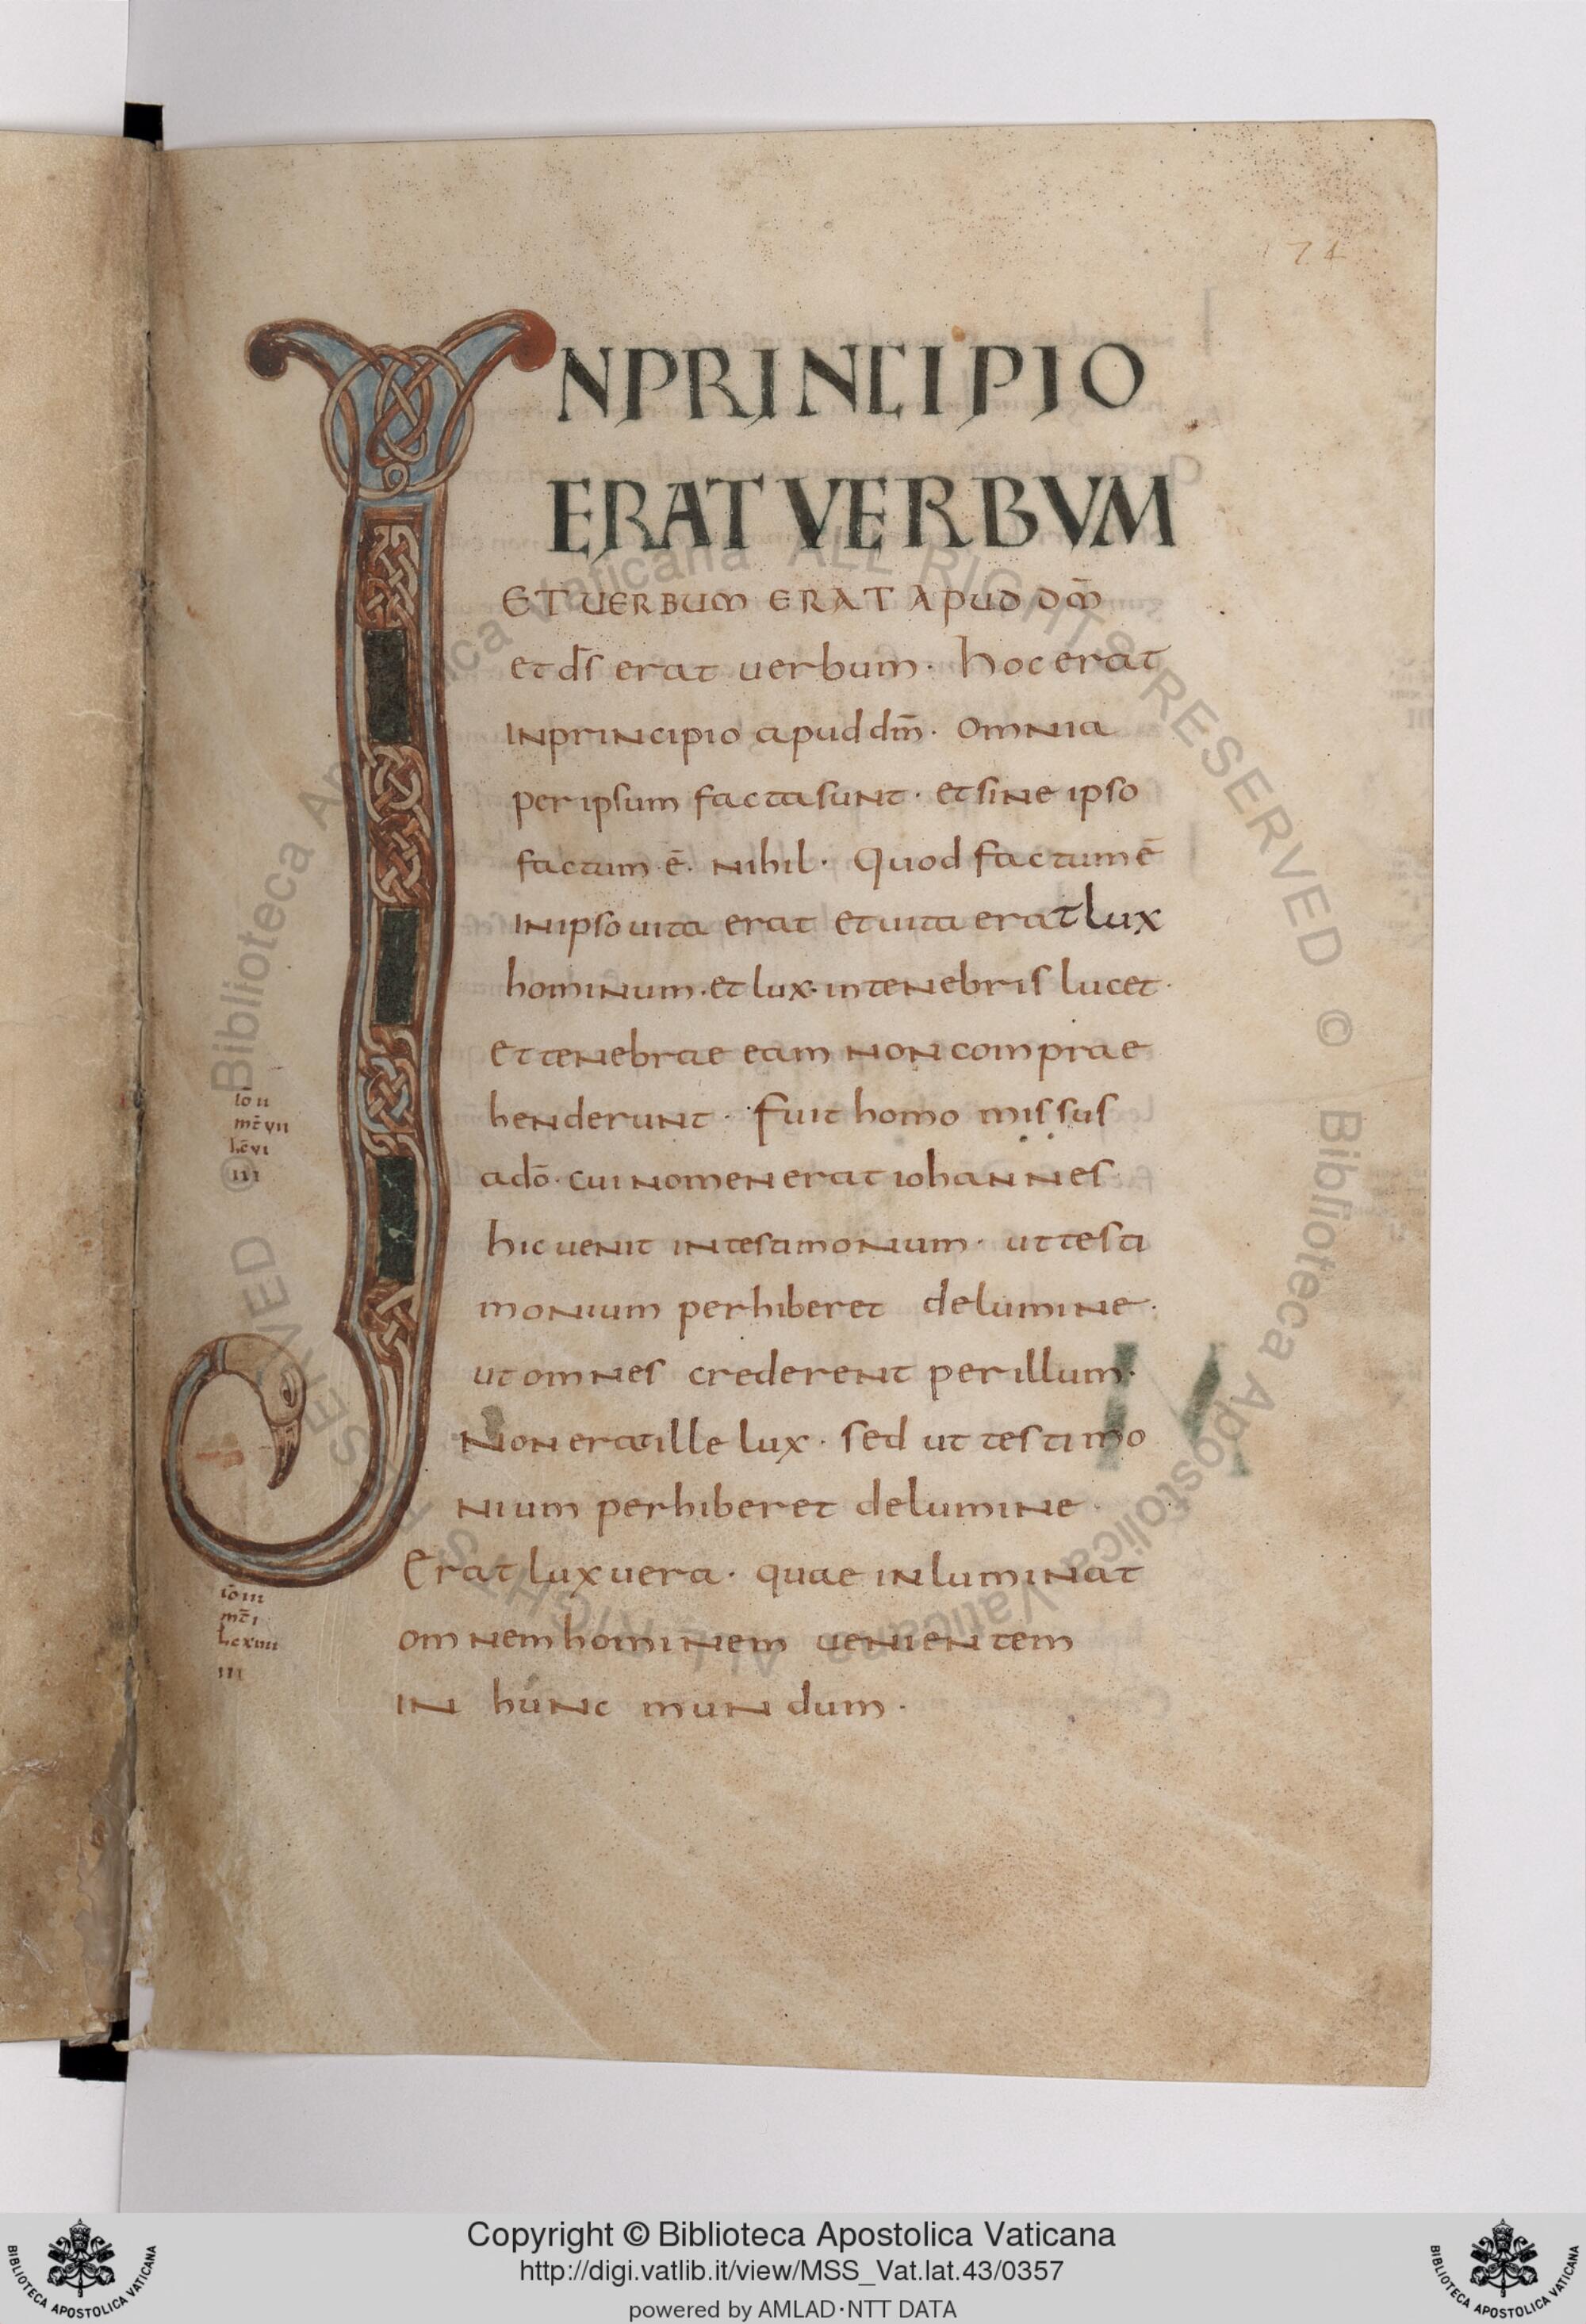 174
INPRINCIPIO
ERAT VERBVM
ET UERBUM ERAT APUD DM̄
et d̄s erat uerbum · hoc erat
INprINcipio apud dm̄ · omNia
per ipsum facta suNt · et siNe ipso
factum ē · Nihil · Quod factum ē
INipso uita erat et uita erat lux
homiNum · et lux · in teNebris lucet ·
et teNebrae eam NoN comprae
heNderuNt · Fuit homo missus
a dō · cui NomeN erat iohaNNes ·
hic ueNit iNtestimoNium · ut testi
moNium perhiberet de lumiNe ·
ut omNes credereNt per illum ·
NoN erat ille lux · sed ut testimo
Nium perhiberet de lumiNe ·
Erat lux uera · quae iNlumiNat
omNem homiNem ueNieNtem
IN huNc muNdum ·
iō ii
mt̄ vii
lc̄ vi
iii
iō iii
mt̄ i
lc xiiii
iii
© Biblioteca Apostolica Vaticana ALL RIGHTS RESERVED © Biblioteca Apostolica Vaticana ALL RIGHTS RESERVED
Copyright © Biblioteca Apostolica Vaticana
http://digi.vatlib.it/view/MSS_Vat.lat.43/0357
powered by AMLAD·NTT DATA
BIBLIOTECA APOSTOLICA VATICANA
BIBLIOTECA APOSTOLICA VATICANA